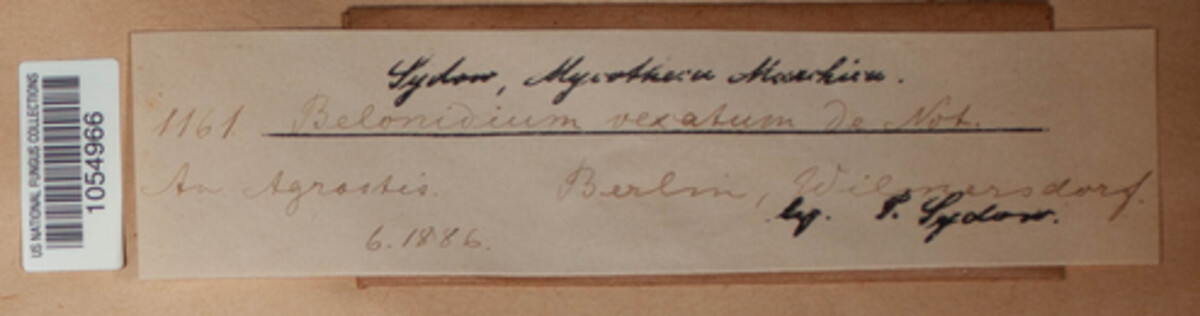 US NATIONAL FUNGUS COLLECTIONS
1054966
Sydow, Mycotheca Marchica.
1161. Belonidium vexatum De Not.
An Agrostis. Berlin, Wilmersdorf.
leg. P. Sydow.
6.1886.